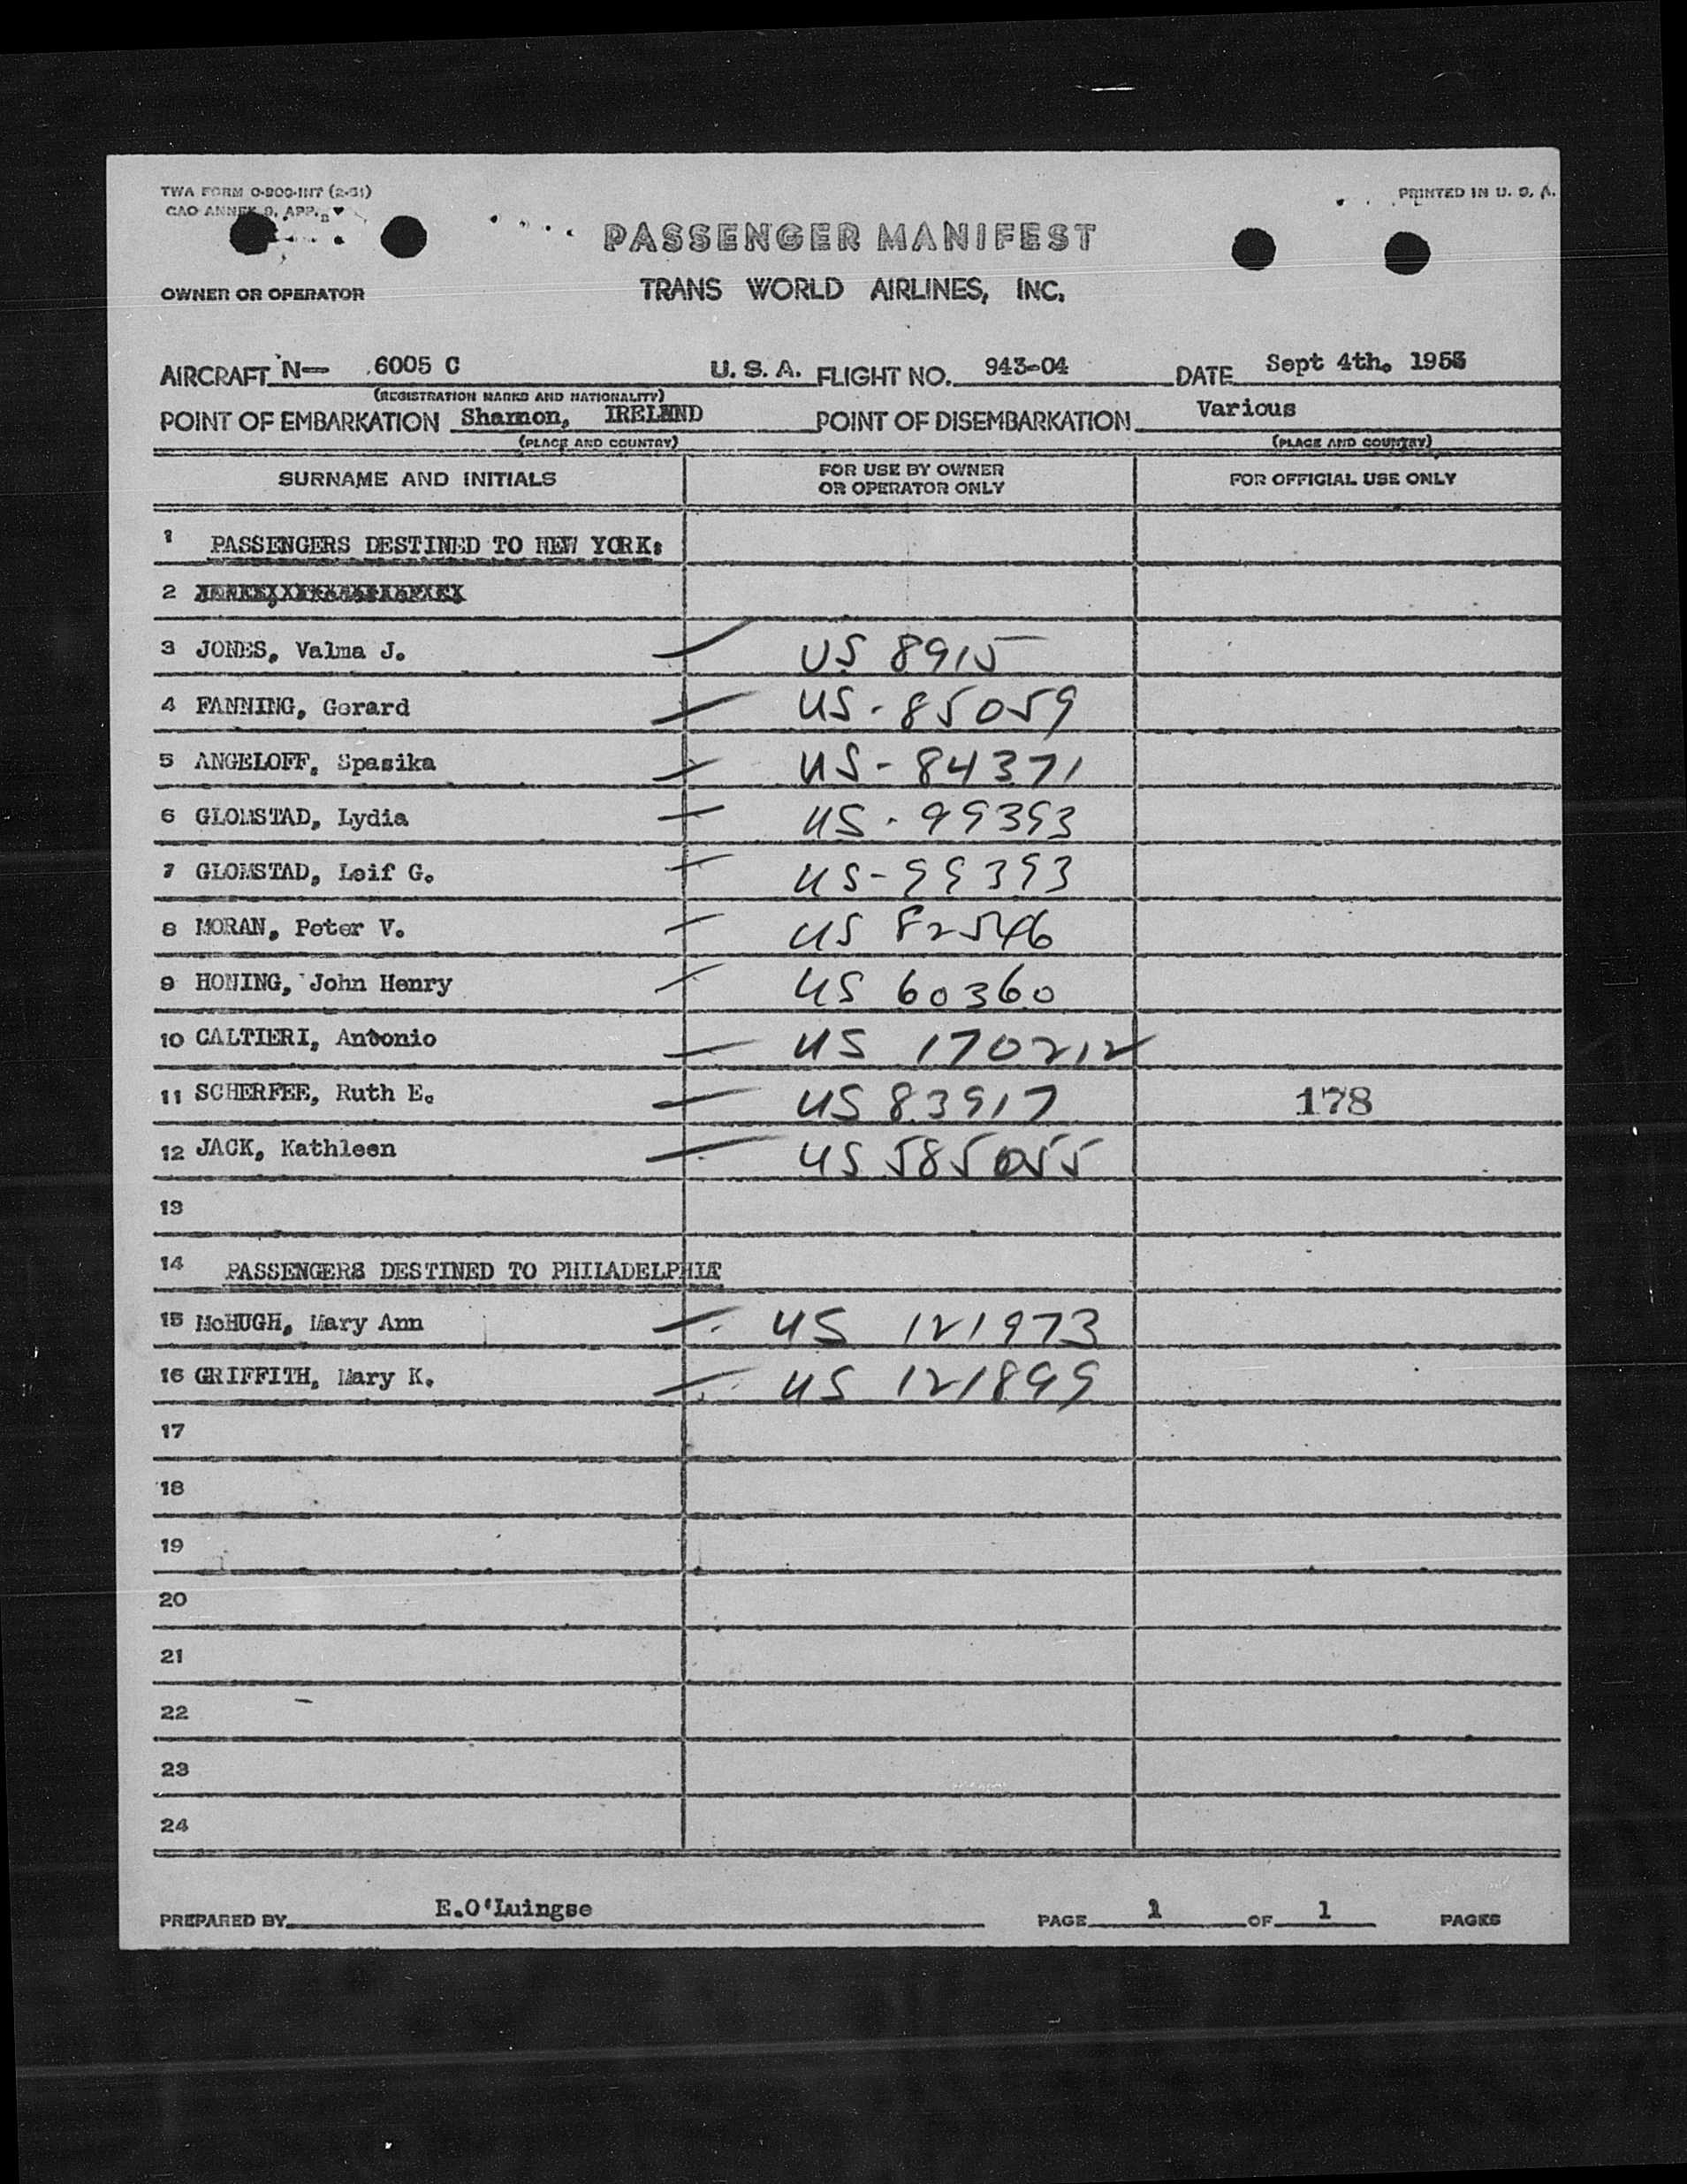 TWA FORM O-800-INT (2-51)
PRINTED IN U. S. A.
PASSENGER MANIFEST
OWNER OR OPERATOR
TRANS WORLD AIRLINES, INC.
AIRCRAFT N— 6005 C U. S. A. FLIGHT NO. 943-04 DATE Sept 4th. 1953
(REGISTRATION MARKS AND NATIONALITY)
POINT OF EMBARKATION Shannon, IRELAND POINT OF DISEMBARKATION Various
(PLACE AND COUNTRY) (PLACE AND COUNTRY)
SURNAME AND INITIALS FOR USE BY OWNER OR OPERATOR ONLY FOR OFFICIAL USE ONLY
1 PASSENGERS DESTINED TO NEW YORK:
2
3 JONES, Valma J. US 8915
4 FANNING, Gerard US-85059
5 ANGELOFF, Spasika US-84371
6 GLOMSTAD, Lydia US-99393
7 GLOMSTAD, Leif G. US-99393
8 MORAN, Peter V. US 82546
9 HONING, John Henry US 60360
10 CALTIERI, Antonio US 170212
11 SCHERFEE, Ruth E. US 83917 178
12 JACK, Kathleen US 585055
13
14 PASSENGERS DESTINED TO PHILADELPHIA
15 McHUGH, Mary Ann US 121973
16 GRIFFITH, Mary K. US 121899
17
18
19
20
21
22
23
24
PREPARED BY E.O'Luingse PAGE 1 OF 1 PAGES